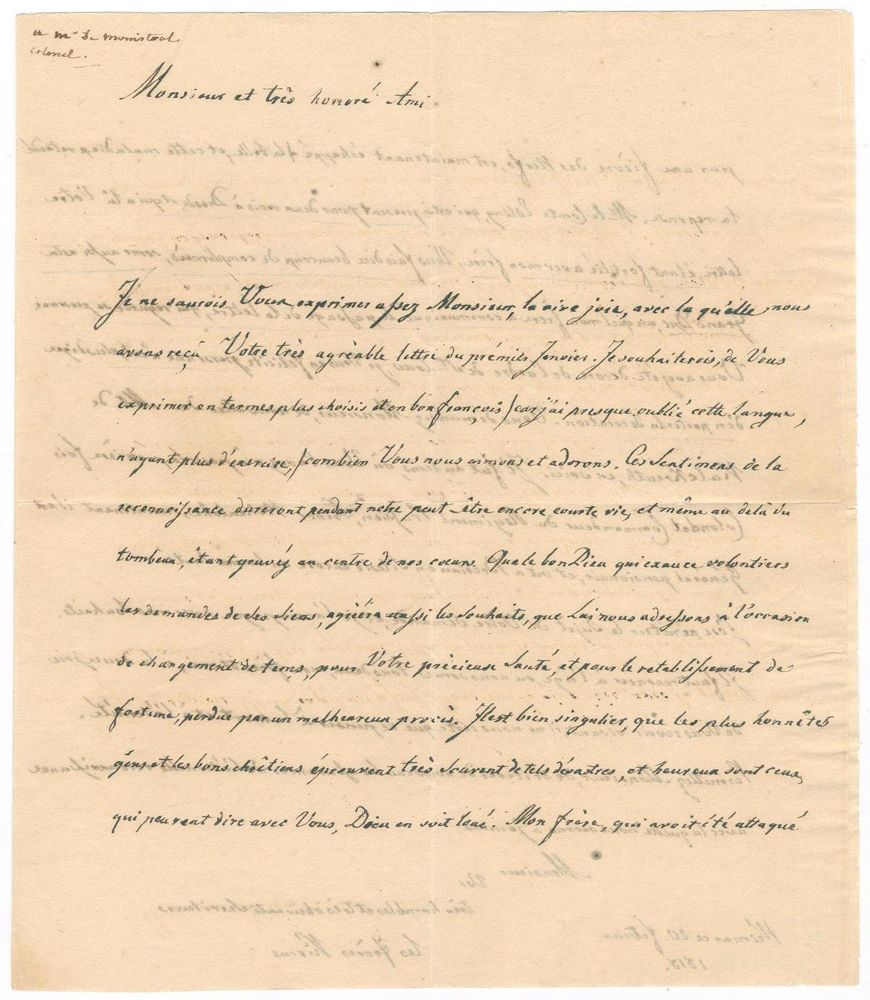 a Mr De Monistrol
colonel.
Monsieur et très honoré Ami.
Je ne saurois Vous exprimer assez Monsieur, la vive joie, avec la qu'elle nous
avons reçu Votre très agrèable lettre du prémils Janvier. Je souhaiterois, de Vous
exprimer en termes plus choisis et en bon françois /car j'ai presque oublié cette langue,
n'ayant plus d'exercise,/ combien Vous nous aimons et adorons. Ces Sentimens de la
reconnoissance dureront pendant notre peut-être encore courte vie, et même au delà du
tombeau, étant gravéz au centre de nos coeurs. Que le bon Dieu qui exauce volontiers
les demandes de des Siens, agrééra aussi les Souhaits, que Lui nous adressons à l'occasion
de changement de tems, pour Votre précieuse Santé, et pour le retablissement de
fortune, perdue par un malheureux procès. Il est bien singulier, que les plus honnêtes
gens et les bons chrêtiens éprouvent très Souvent de tels désastres, et heureux sont ceux,
qui peuvent dire avec Vous, Dieu en soit loué. Mon frère, qui avoit été attaqué